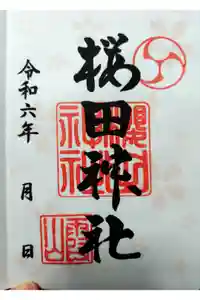 櫻田神社
令和六年　月　日